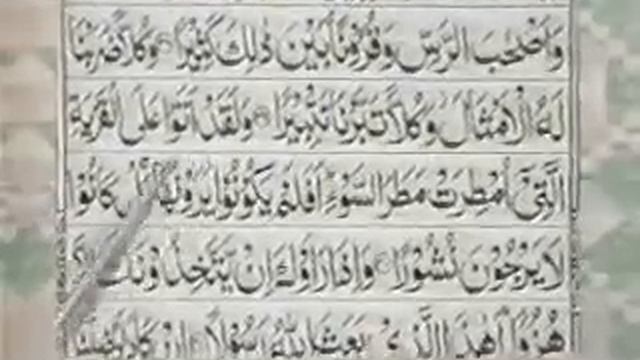 وَاَصْحٰبَ الرَّسِّ وَقُرُوْنًۢا بَيْنَ ذٰلِكَ كَثِيْرًا وَكُلًّا ضَرَبْنَا
لَهُ الْاَمْثَالَ وَكُلًّا تَبَّرْنَا تَتْبِيْرًا وَلَقَدْ اَتَوْا عَلَى الْقَرْيَةِ
الَّتِيْۤ اُمْطِرَتْ مَطَرَ السَّوْءِ اَفَلَمْ يَكُوْنُوْا يَرَوْنَهَا بَلْ كَانُوْا
لَا يَرْجُوْنَ نُشُوْرًا وَاِذَا رَاَوْكَ اِنْ يَّتَّخِذُوْنَكَ اِلَّا
هُزُوًا اَهٰذَا الَّذِيْ بَعَثَ اللّٰهُ رَسُوْلًا اِنْ كَادَ لَيُضِلُّنَا